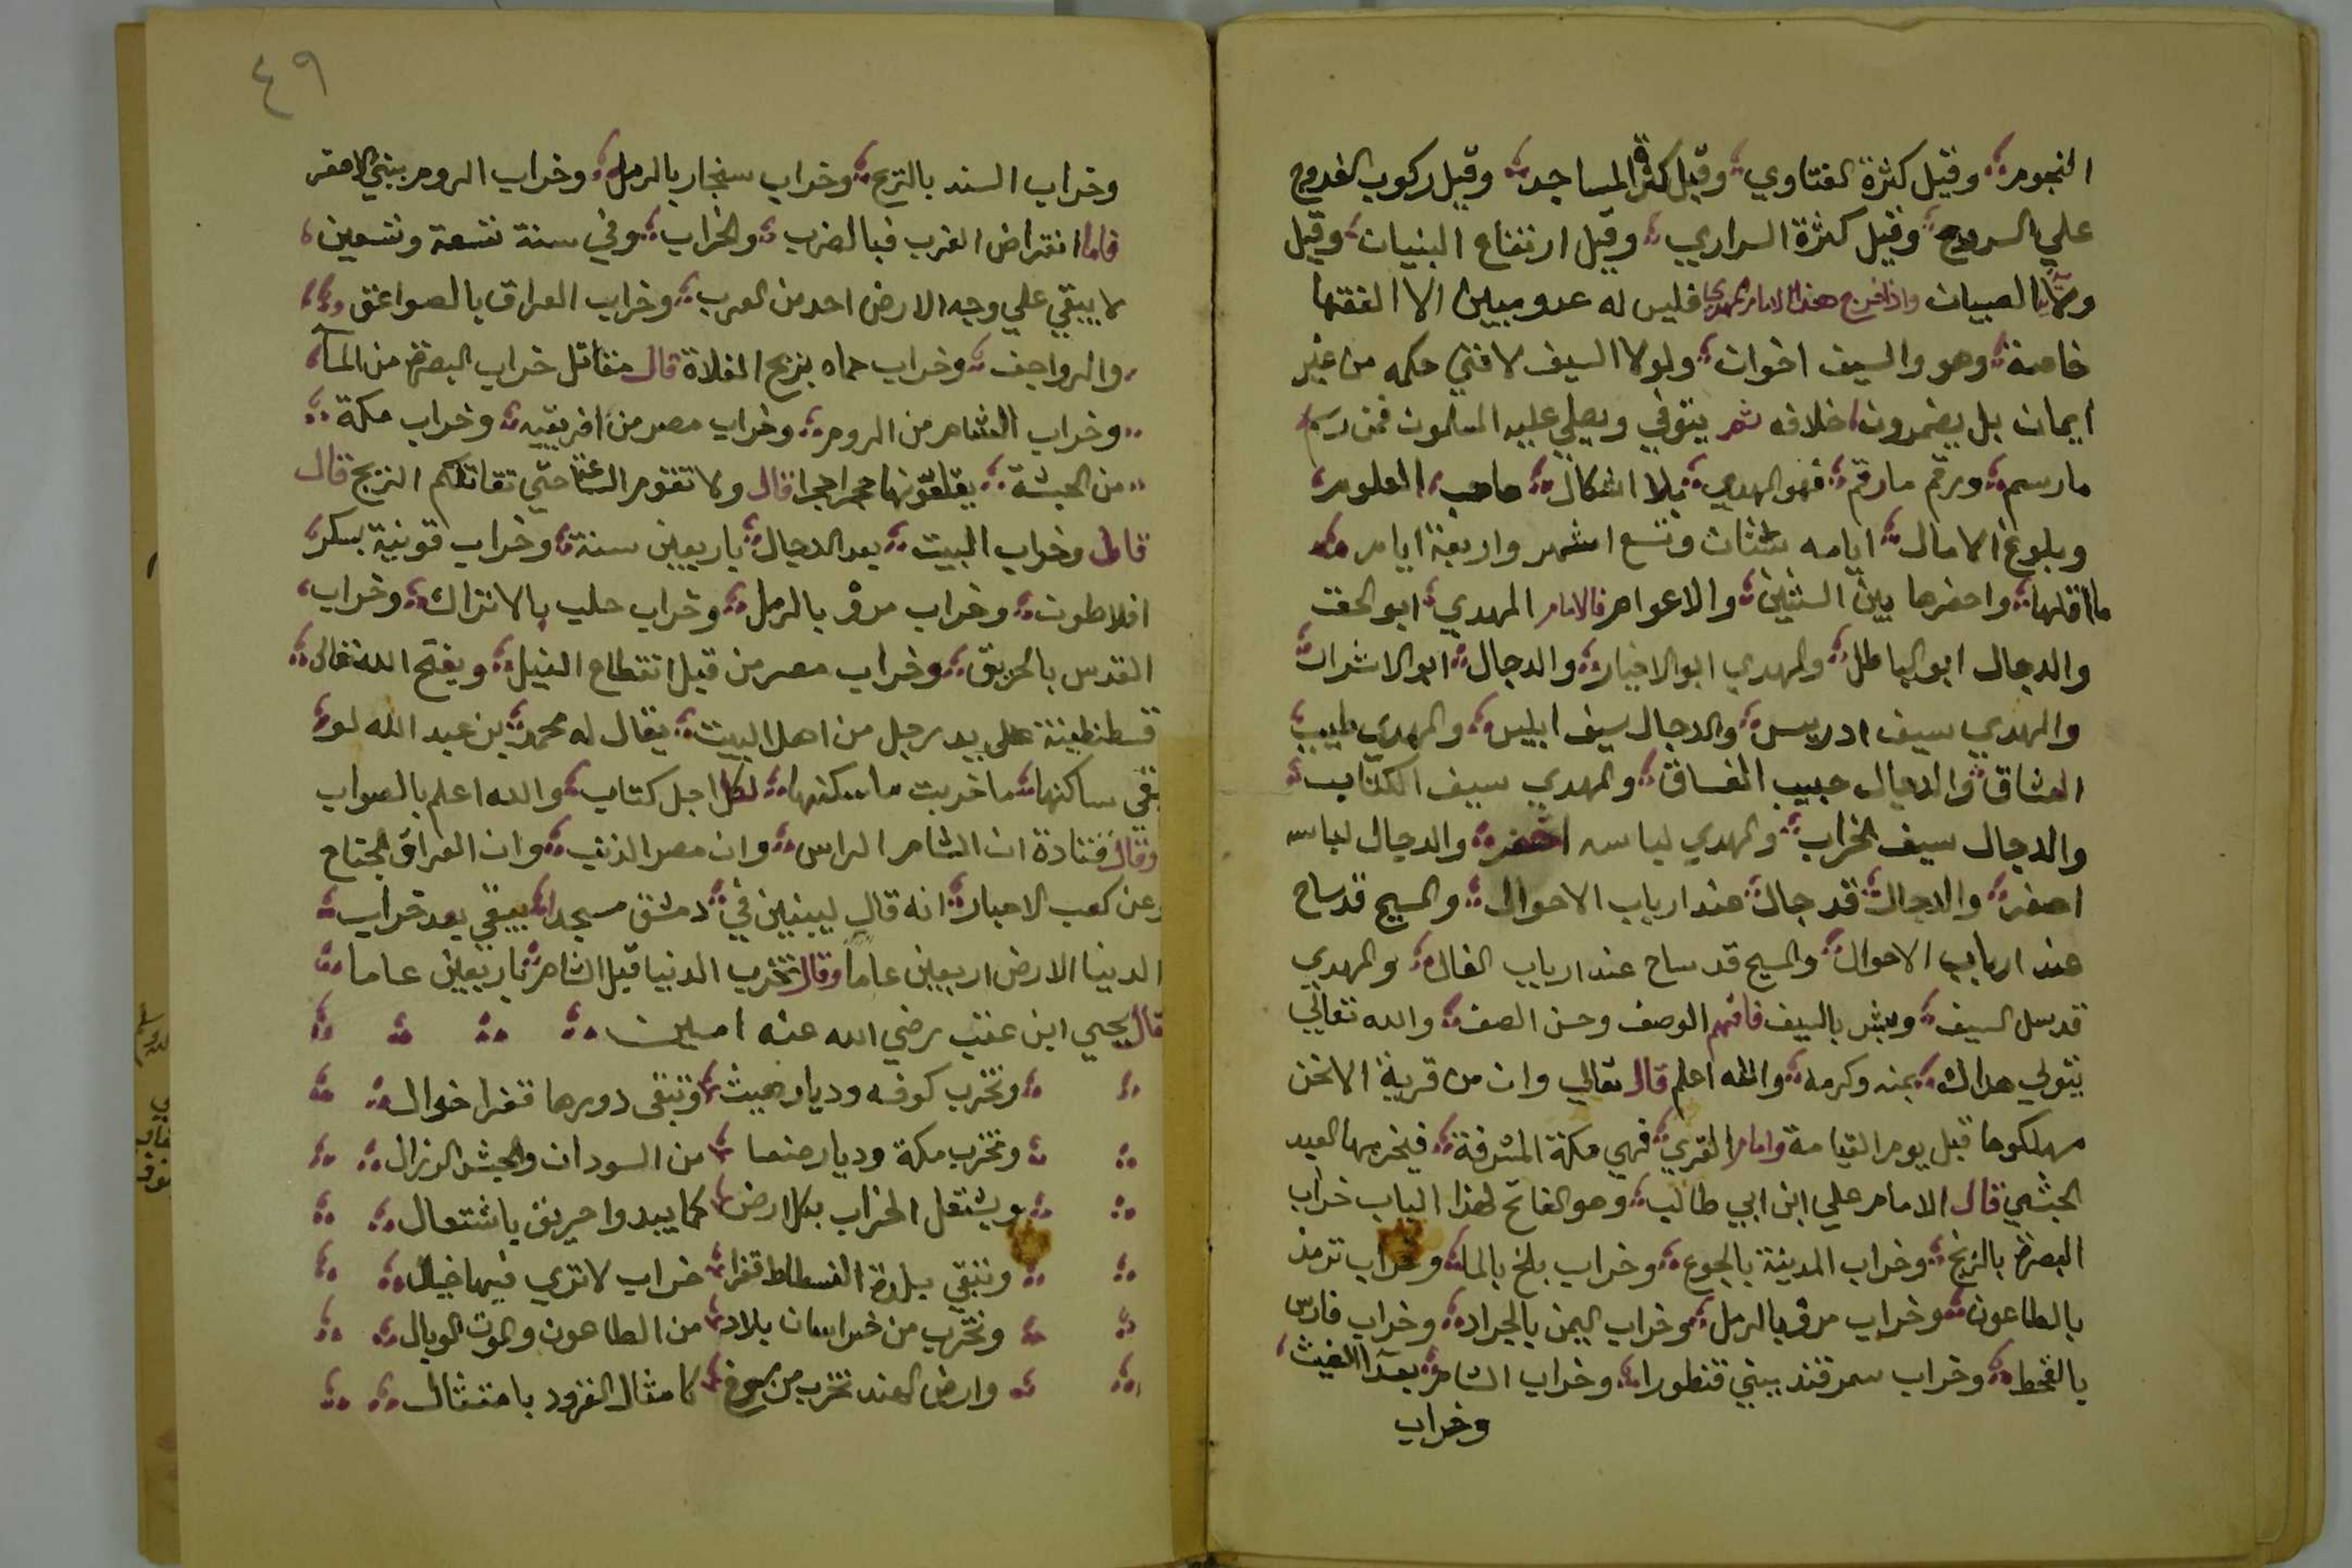 النجوم وقيل كثرة الفتاوي وقيل كثرة المساجد وقيل ركوب الفروج
علي السروج وقيل كثرة السراري وقيل ارتفاع البنيان وقيل
ولاية الصبيان واذا خرج هذا الامام المهدي فليس له عدو مبين الا الفقها
خاصة وهو والسيف اخوان ولولا السيف لافتي حكمه من غير
ايمان بل يضمرون خلافه ثم يتوفي ويصلي عليه المسلمون فمن رسم
مارسم ورقم مارقم فهو المهدي بلا اشكال صاحب العلوم
وبلوغ الامال ايامه وتسع اشهر واربعة ايام
ما اقلها واحضرها بين السنين والاعوام فالامام المهدي ابو الحق
والدجال ابو الباطل والمهدي ابو الاخيار والدجال ابو الاشرار
والمهدي سيف ادريس والدجال سيف ابليس والمهدي طبيب
العشاق والدجال حبيب الفساق والمهدي سيف الكتاب
والدجال سيف الخراب والمهدي لباسه اخضر والدجال لباسه
اصفر والدجال قد جال عند ارباب الاحوال والمسيح قد ساح
عند ارباب الاحوال والمسيح قد ساح عند ارباب القال والمهدي
قد سل السيف وبشر بالسيف فافهم الوصف وحسن الصف والله تعالي
يتولي هداك بمنه وكرمه والله اعلم قال تعالي وان من قرية الا نحن
مهلكوها قبل يوم القيامة واما ام القري فهي مكة المشرفة فيخربها العبد
الحبشي قال الامام علي ابن ابي طالب وهو الفاتح لهذا الباب خراب
البصرة بالزنج وخراب المدينة بالجوع وخراب بلخ بالما وخراب ترمذ
بالطاعون وخراب مرو بالرمل وخراب اليمن بالجراد وخراب فارس
بالقحط وخراب سمرقند ببني قنطورا وخراب الشام بعد الغيث
وخراب
٤٩
وخراب السند بالريح وخراب سنجار بالرمل وخراب الروم ببني الاصفر
فاما انقراض العرب فبالضرب والخراب وفي سنة تسعة وتسعين
لا يبقي علي وجه الارض احد من العرب وخراب العراق بالصواعق
والرواجف وخراب حماه بزيح الفلاة قال مقاتل خراب البصرة من الماء
وخراب الشام من الروم وخراب مصر من افريقيه وخراب مكة
من الحبشة يقلعونها حجرا حجرا قال ولا تقوم الساعة حتي تقاتلكم الزنج قال
قال وخراب البيت بعد الدجال باربعين سنة وخراب قونية بسكر
افلاطون وخراب مرو بالرمل وخراب حلب بالاتراك وخراب
القدس بالحريق وخراب مصر من قبل انقطاع النيل ويفتح الله تعالي
قسطنطينة علي يد رجل من اهل البيت يقال له محمد بن عبد الله لو
بقي ساكنها ما خربت ماسكنها لكل اجل كتاب والله اعلم بالصواب
وقال قتادة ان الشام الراس وان مصر الذنب وان العراق الجناح
وعن كعب الاحبار انه قال ليبنين في دمشق مسجدا يبقي بعد خراب
الدنيا الارض اربعين عاما وقال تخرب الدنيا قبل الشام باربعين عاما
قال يحيي ابن عقب رضي الله عنه امين
وتخرب كوفه وديار هيت وتبقي دورها قفرا خوال
وتخرب مكة وديار صنعا من السودان والحبش الرزال
ويشتعل الخراب بكل ارض كما يبدوا حريق باشتعال
وتبقي بلدة الفسطاط قفرا خراب لاتري فيها خيال
وتخرب من خراسان بلاد من الطاعون والموت الوبال
وارض الهند تخرب من كامثال القرود بامتثال